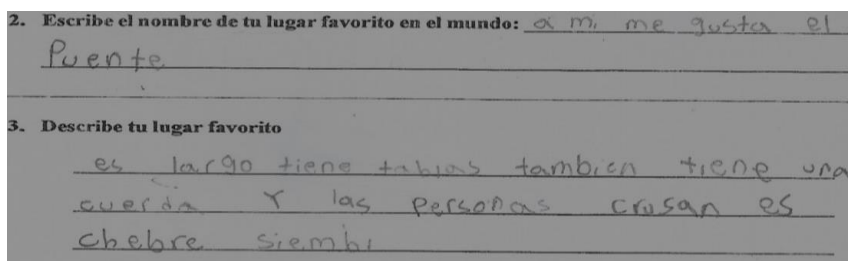 2. Escribe el nombre de tu lugar favorito en el mundo: a mi me gusta el
Puente
3. Describe tu lugar favorito
es largo tiene tablas tambien tiene una
cuerda Y las personas crusan es
chebre